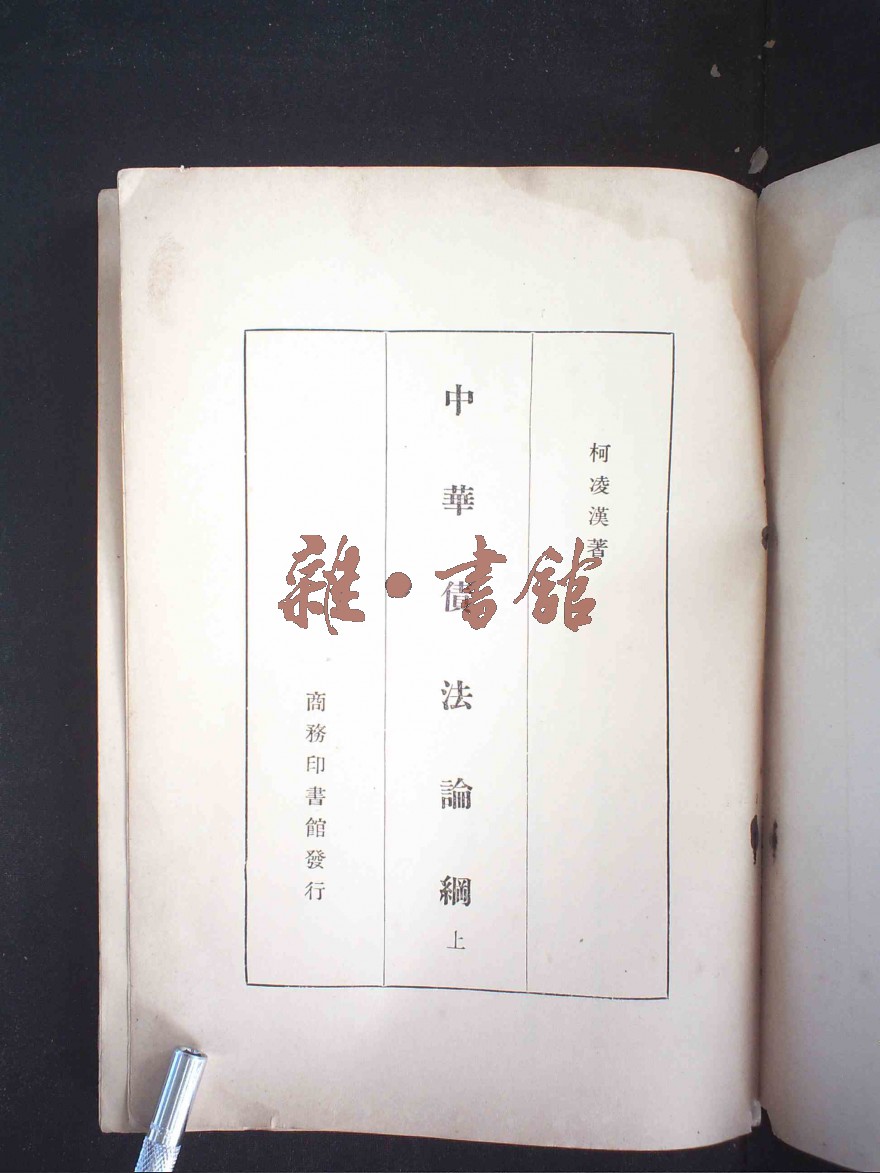 柯凌漢著
中華債法論綱上
商務印書館發行
雜·書館